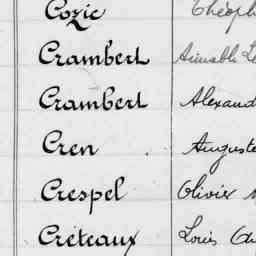 Cozic Théoph
Crambert Aimable Le
Crambert Alexand
Cren Auguste
Crespel Olivier
Créteaux Louis